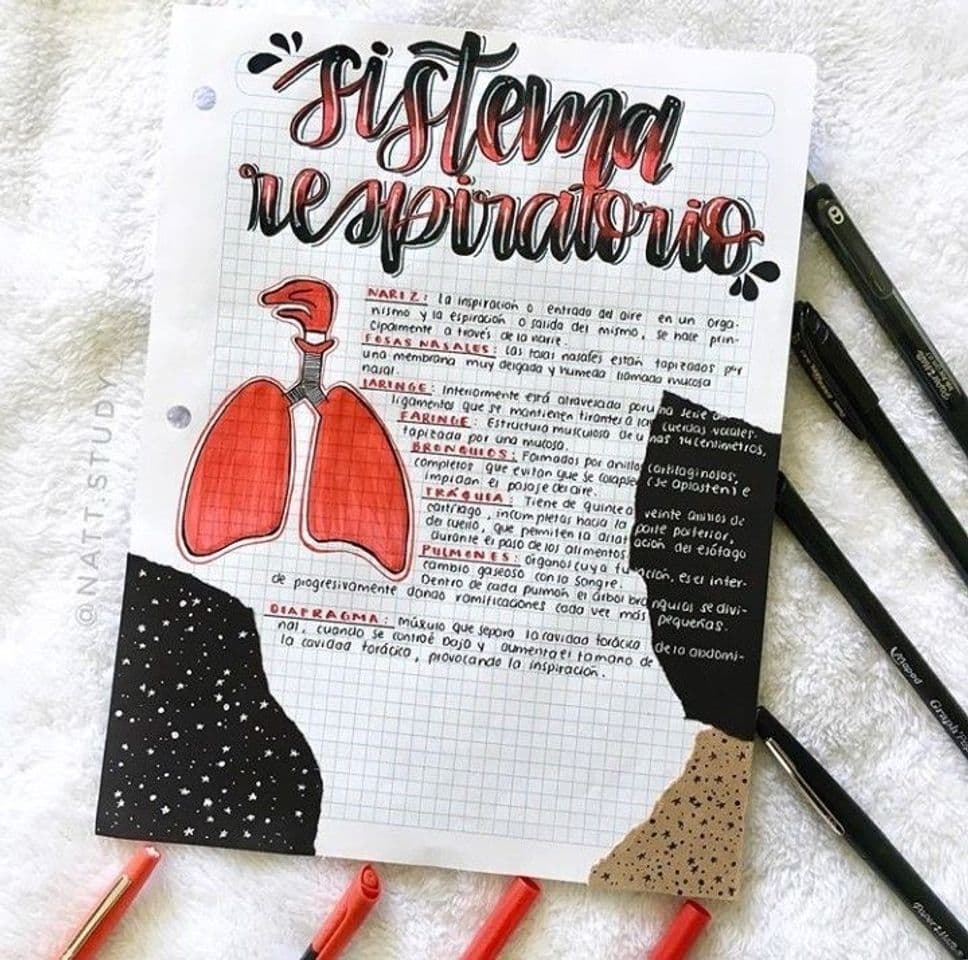 sistema
respiratorio
NARIZ: La inspiración o entrada del aire en un orga-
nismo y la espiración o salida del mismo, se hace prin-
cipalmente a través de la narie.
FOSAS NASALES: Las fosas nasales están tapizados por
una membrana muy delgada y humeda llamada mucosa
nasal.
LARINGE: Interiormente está atravesada por una serie de
ligamentos que se mantienen tirantes a las cuerdas vocales.
FARINGE: Estructura musculosa de unas 14 centímetros,
tapizada por una mucosa.
BRONQUIOS: Formados por anillos cartilaginosos,
completos que evitan que se colapsen (se aplasten) e
impidan el pasaje del aire.
TRÁQUIA: Tiene de quince a veinte anillos de
cartílago, incompletas hacia la parte posterior,
del cuello, que permiten la dilatación del esófago
durante el paso de los alimentos.
PULMONES: órganos cuya función, es el inter-
cambio gaseoso con la sangre.
Dentro de cada pulmón el árbol bronquias se divi-
de progresivamente dando ramificaciones cada vez más pequeñas.
DIAFRAGMA: músculo que separa la cavidad torácica de la abdomi-
nal, cuando se contraé bajo y aumenta el tamano de
la cavidad torácica, provocando la inspiración.
@NATT.STUDY